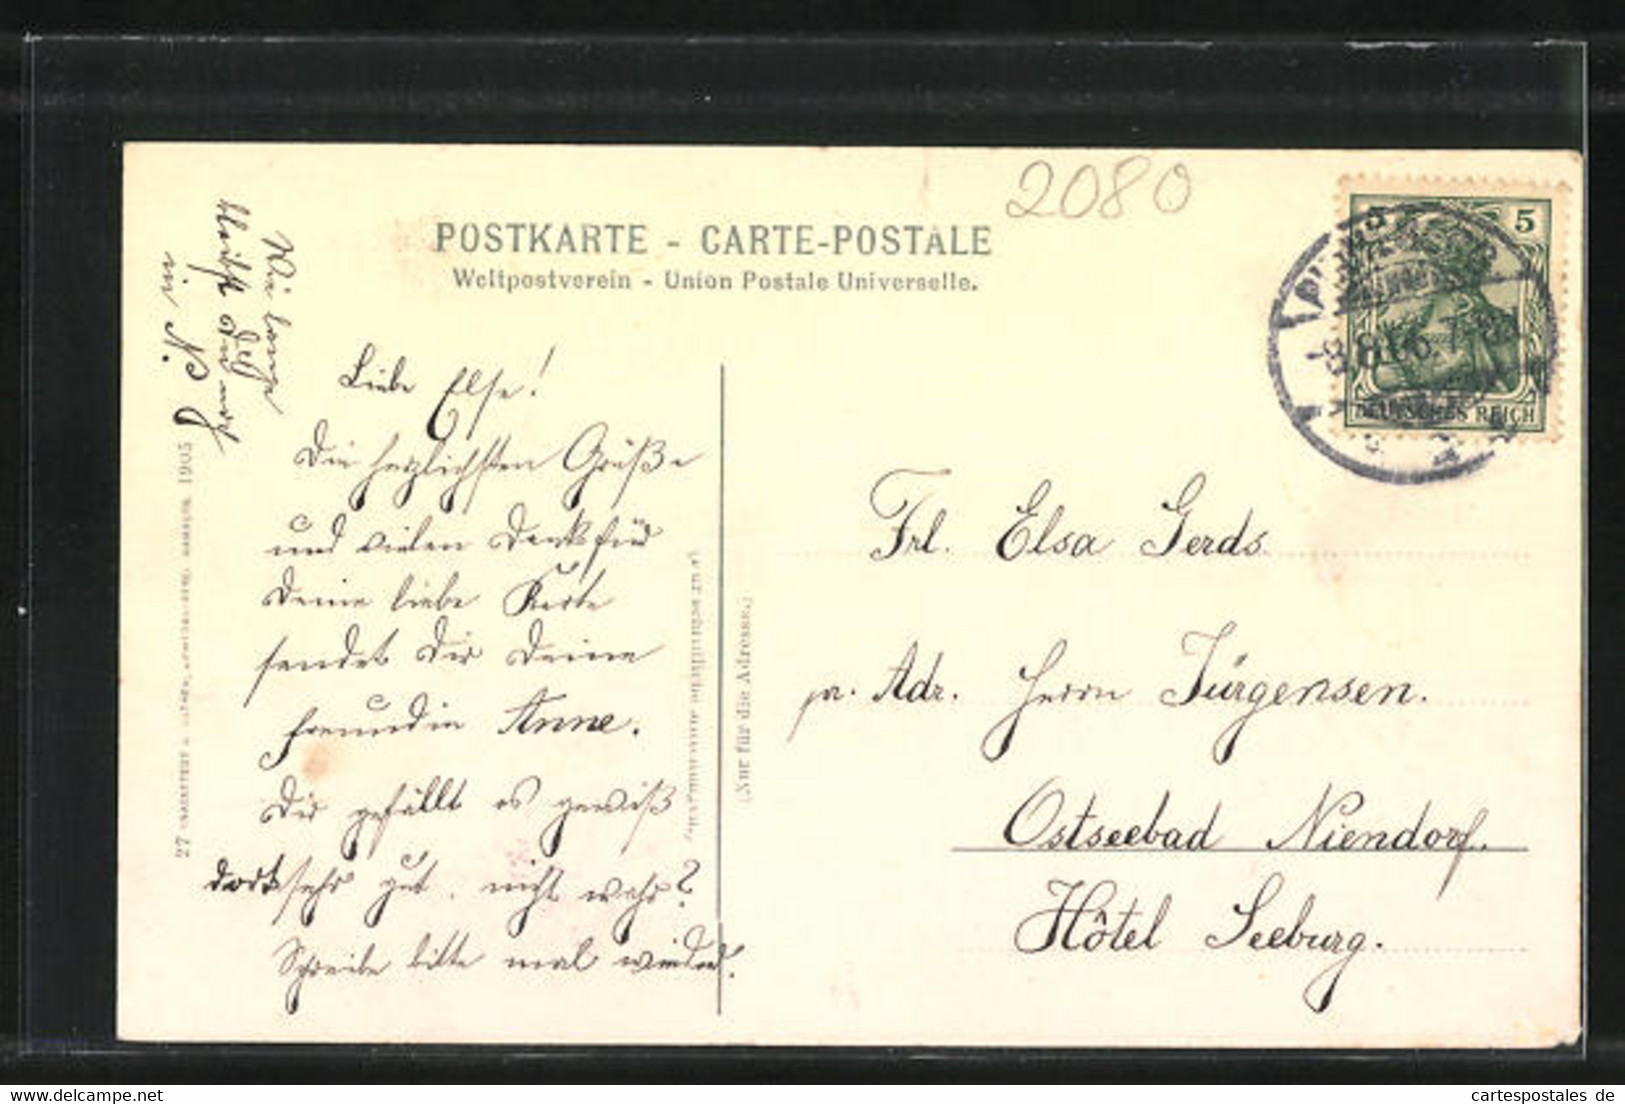 2080
POSTKARTE - CARTE-POSTALE
Weltpostverein - Union Postale Universelle.
5
DEUTSCHES REICH
8.8.06. 7-8
Wie lange
bleibst Du noch
in N.
Liebe Else!
Die herzlichsten Grüße
und vielen Dank für
Deine liebe Karte
sendet Dir Deine
Freundin Anne.
Dir gefällt es gewiß
dort sehr gut, nicht wahr?
Schreibe bitte mal wieder!
Frl. Elsa Gerds
pr. Adr. Herrn Jürgensen.
Ostseebad Niendorf.
Hôtel Seeburg.
(Nur für die Adresse.)
27
1905
cartespostales de